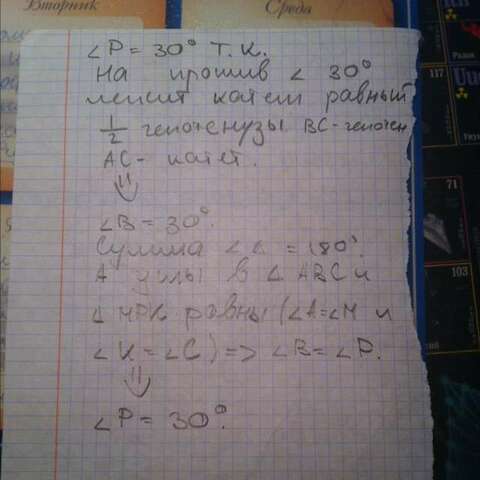 Вторник
Среда
∠P = 30° т.к.
На против ∠ 30°
лежит катет равный
1/2 гепотенузы BC-гепотен
AC- катет.
⇓
∠B = 30°.
Сумма ∠ = 180°.
А углы в ∠ ABC и
∠ MPK равны (∠A=∠M и
∠K=∠C) => ∠B=∠P.
⇓
∠P = 30°.
Радон
117
Uu
71
103